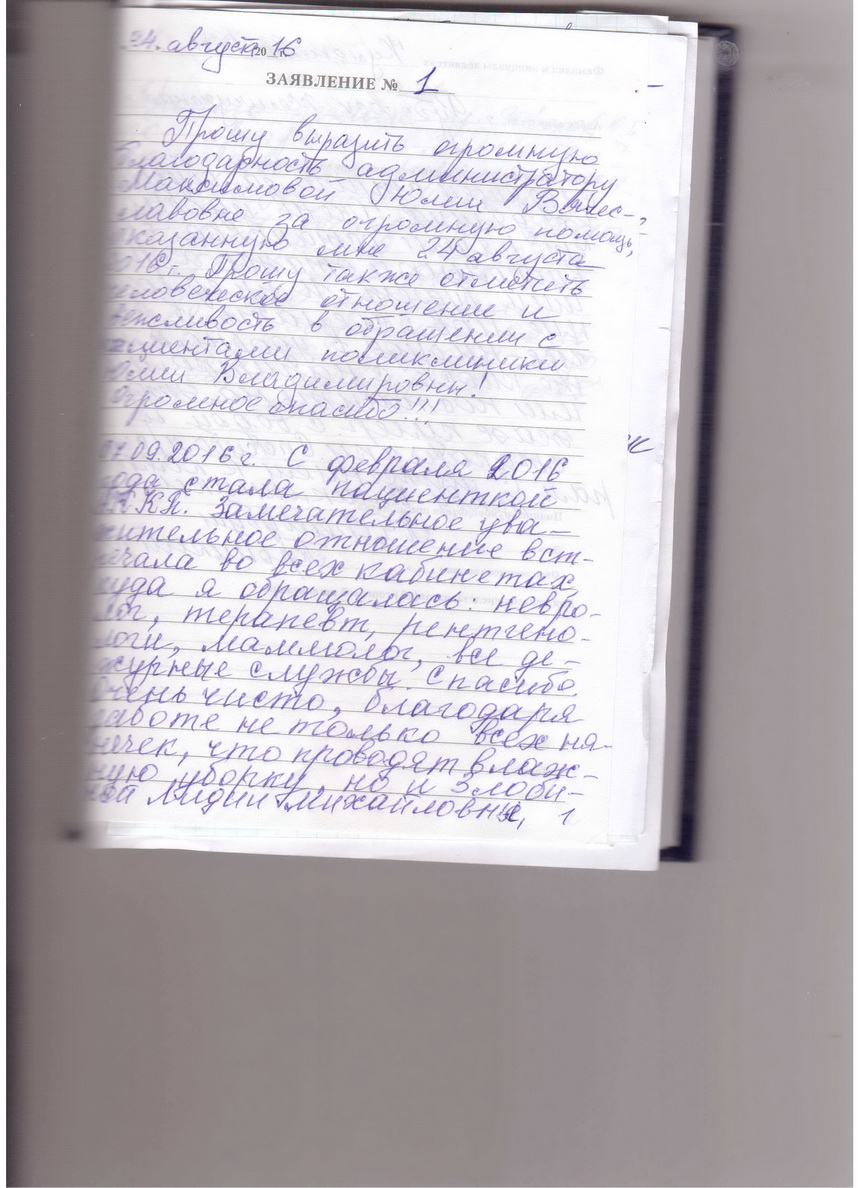 24. августа 2016 г.
ЗАЯВЛЕНИЕ № 1
Прошу выразить огромную
благодарность администратору
Максимовой Юлии Вячес-
лавовне за огромную помощь,
оказанную мне 24 августа
2016 г. Прошу также отметить
человеческое отношение и
вежливость в обращении с
пациентами поликлиники
Юлии Владимировны!
Огромное спасибо!!!
07.09.2016 г. С февраля 2016
года стала пациенткой
К.П. Замечательное ува-
жительное отношение вст-
речала во всех кабинетах,
куда я обращалась: невро-
лог, терапевт, рентгено-
логи, маммолог, все де-
журные службы. Спасибо.
Очень чисто, благодаря
работе не только всех ня-
нечек, что проводят влаж-
ную уборку, но и Злоби-
Лидии Михайловны, 1